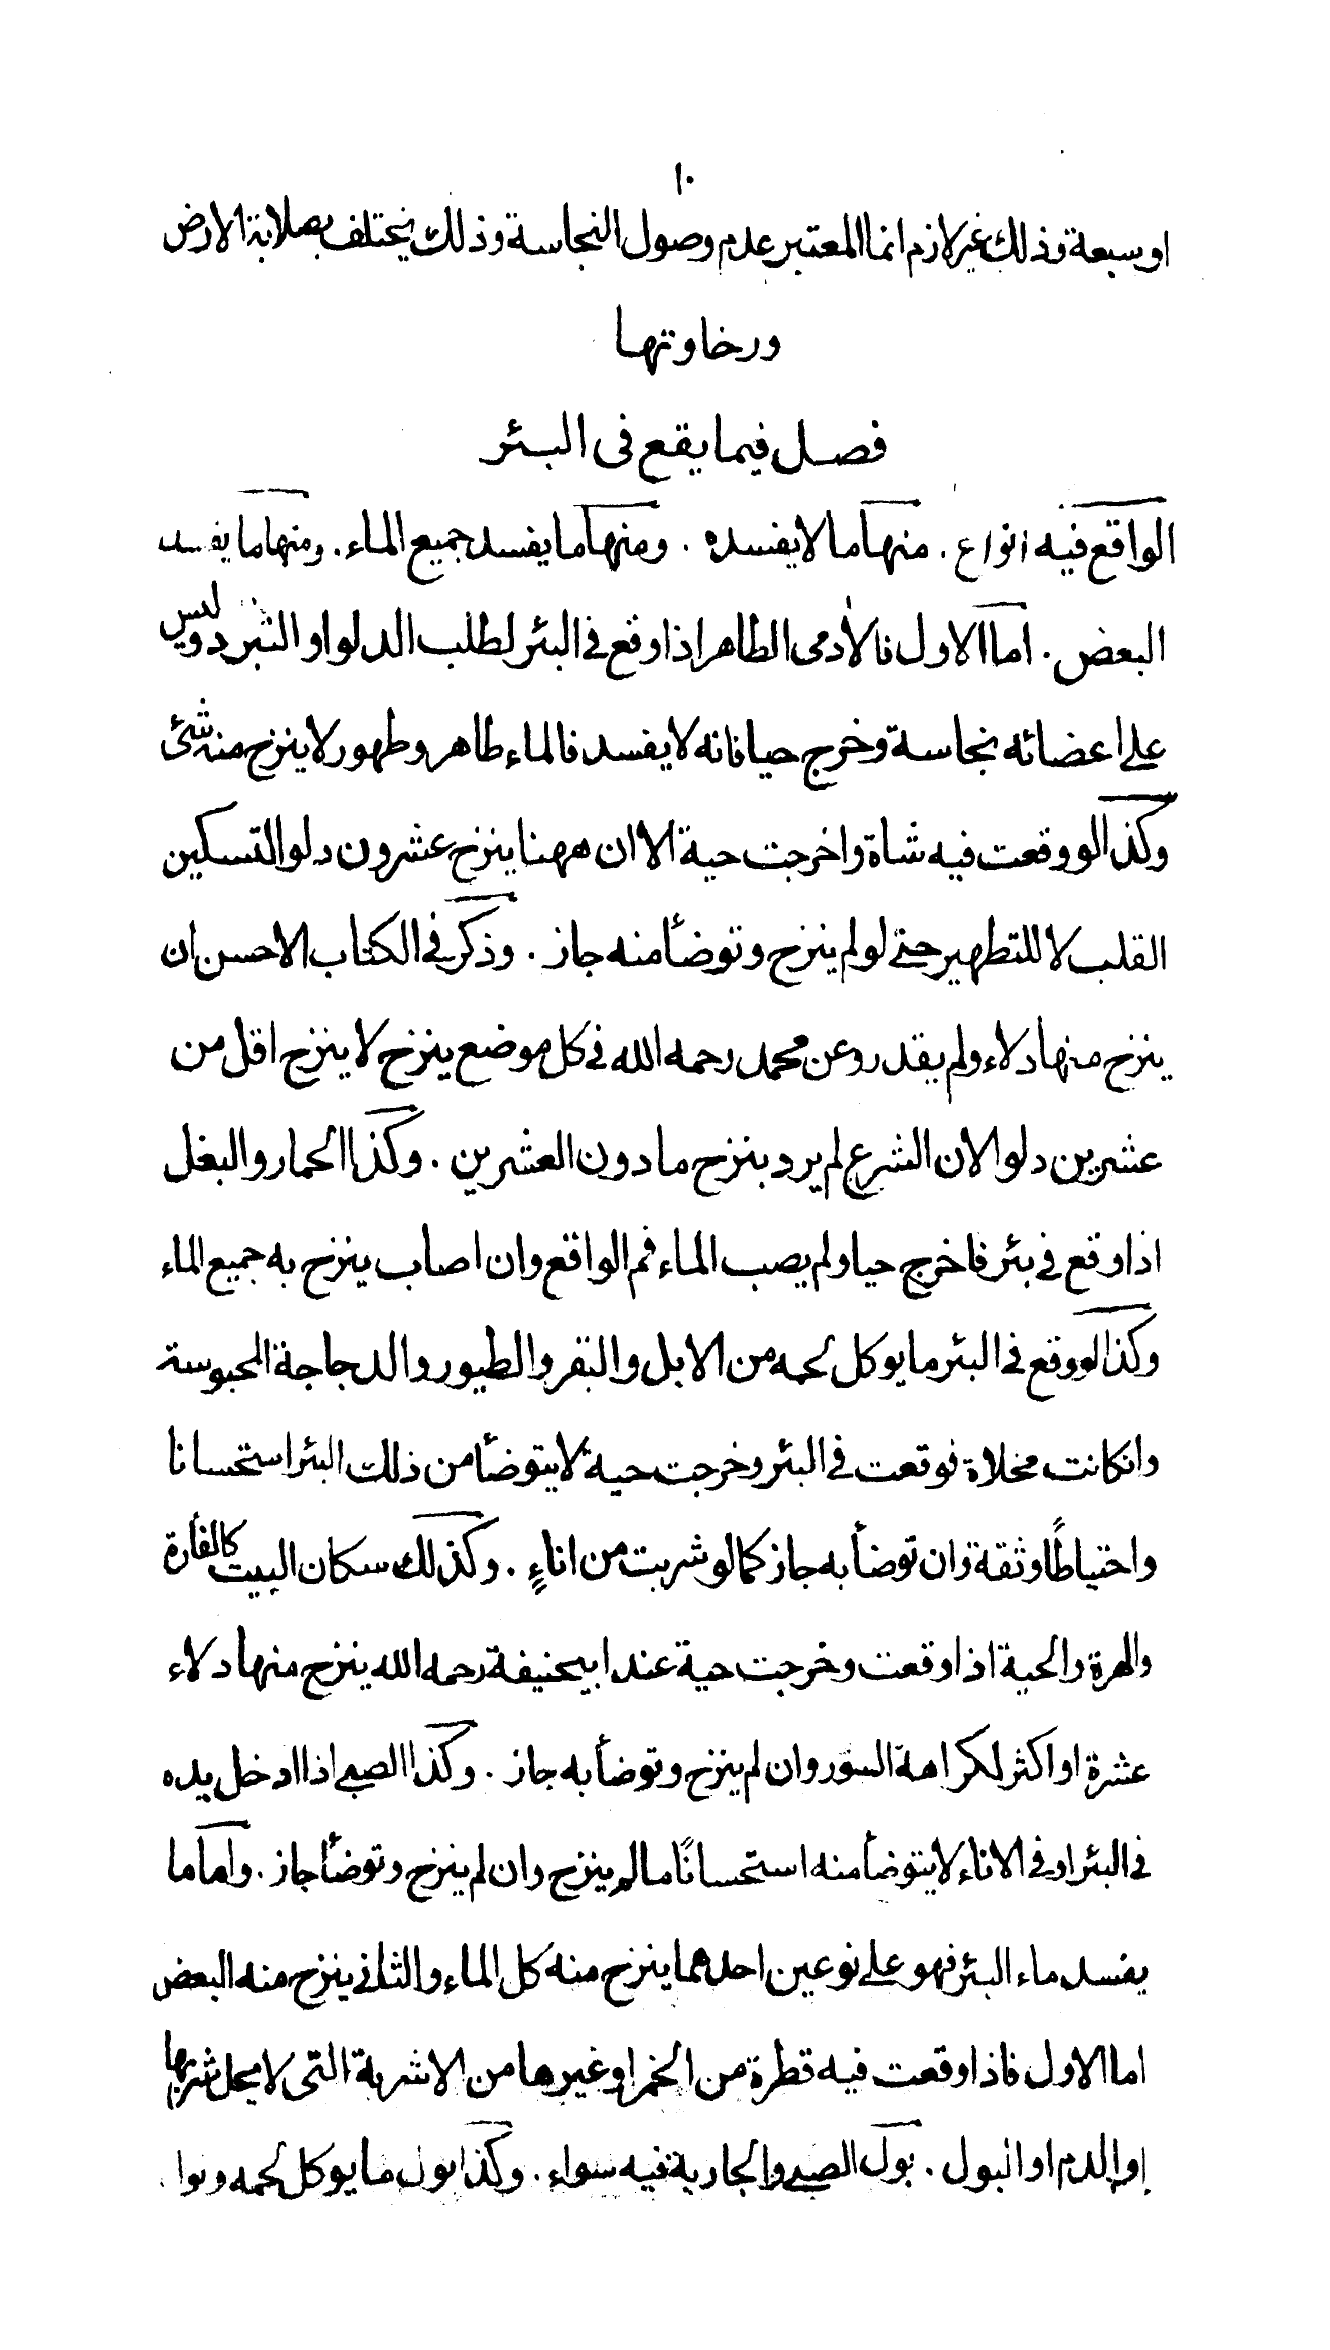 ١٠
او سبعة وذلك غير لازم انما المعتبر عدم وصول النجاسة وذلك يختلف بصلابة الارض
ورخاوتها
فصل فيما يقع فى البئر
الواقع فيه انواع . منها ما لا يفسده . ومنها ما يفسد جميع الماء . ومنها ما يفسد
البعض . اما الاول فالأدمى الطاهر اذا وقع فى البئر لطلب الدلو او التبرد وليس
على اعضائه نجاسة وخرج حيا فانه لا يفسد فالماء طاهر وطهور لا ينزح منه شئ
وكذا لو وقعت فيه شاة واخرجت حية الا ان ههنا ينزح عشرون دلوا لتسكين
القلب لا للتطهير حتى لو لم ينزح وتوضأ منه جاز . وذكر فى الكتاب الاحسن ان
ينزح منها دلاء ولم يقدر وعن محمد رحمه الله فى كل موضع ينزح لا ينزح اقل من
عشرين دلوا لان الشرع لم يرد بنزح ما دون العشرين . وكذا الحمار والبغل
اذا وقع فى بئر فاخرج حيا ولم يصب الماء فم الواقع وان اصاب ينزح به جميع الماء
وكذا لو وقع فى البئر ما يوكل لحمه من الابل والبقر والطيور والدجاجة المحبوسة
وانكانت مخلاة فوقعت فى البئر وخرجت حية لا يتوضأ من ذلك البئر استحسانا
واحتياطًا وثقة وان توضأ به جاز كما لو شربت من اناءٍ . وكذلك سكان البيت كالفأرة
والهرة والحية اذا وقعت وخرجت حية عند ابيحنيفة رحمه الله ينزح منها دلاء
عشرة او اكثر لكراهة السؤر وان لم ينزح وتوضأ به جاز . وكذا الصبى اذا ادخل يده
فى البئر او فى الاناء لا يتوضأ منه استحسانًا ما لم ينزح وان لم ينزح وتوضأ جاز . واما ما
يفسد ماء البئر فهو على نوعين احدهما ينزح منه كل الماء والثانى ينزح منه البعض
اما الاول فاذا وقعت فيه قطرة من الخمر او غيرها من الاشربة التى لا يحل شربها
او الدم او البول . بول الصبى والجارية فيه سواء . وكذا بول ما يوكل لحمه